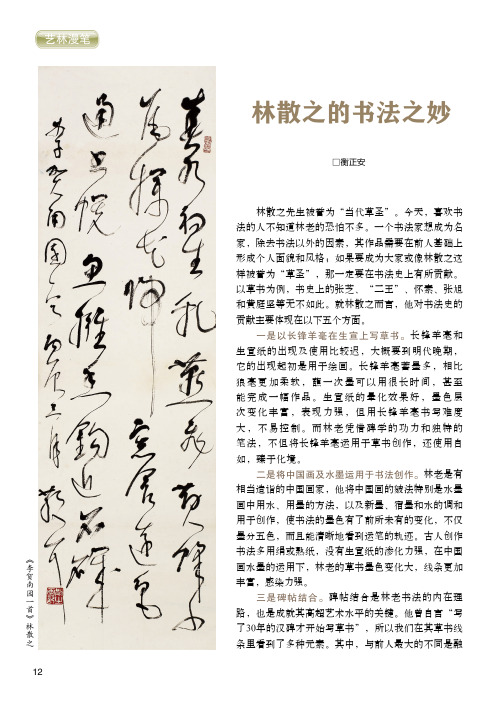 艺林漫笔
林散之的书法之妙
□衡正安
林散之先生被誉为“当代草圣”。今天,喜欢书
法的人不知道林老的恐怕不多。一个书法家想成为名
家,除去书法以外的因素,其作品需要在前人基础上
形成个人面貌和风格;如果要成为大家或像林散之这
样被誉为“草圣”,那一定要在书法史上有所贡献。
以草书为例,书史上的张芝、“二王”、怀素、张旭
和黄庭坚等无不如此。就林散之而言,他对书法史的
贡献主要体现在以下五个方面。
一是以长锋羊毫在生宣上写草书。长锋羊毫和
生宣纸的出现及使用比较迟,大概要到明代晚期,
它的出现起初是用于绘画。长锋羊毫蓄墨多,相比
狼毫更加柔软,蘸一次墨可以用很长时间,甚至
能完成一幅作品。生宣纸的晕化效果好,墨色层
次变化丰富,表现力强,但用长锋羊毫书写难度
大,不易控制。而林老凭借碑学的功力和独特的
笔法,不但将长锋羊毫运用于草书创作,还使用自
如,臻于化境。
二是将中国画及水墨运用于书法创作。林老是有
相当造诣的中国画家,他将中国画的皴法特别是水墨
画中用水、用墨的方法,以及新墨、宿墨和水的调和
用于创作,使书法的墨色有了前所未有的变化,不仅
墨分五色,而且能清晰地看到运笔的轨迹。古人创作
书法多用绢或熟纸,没有生宣纸的渗化力强,在中国
画水墨的运用下,林老的草书墨色变化大,线条更加
丰富,感染力强。
三是碑帖结合。碑帖结合是林老书法的内在理
路,也是成就其高超艺术水平的关键。他曾自言“写
了30年的汉碑才开始写草书”,所以我们在其草书线
条里看到了多种元素。其中,与前人最大的不同是融
《李贺南园一首》林散之
12